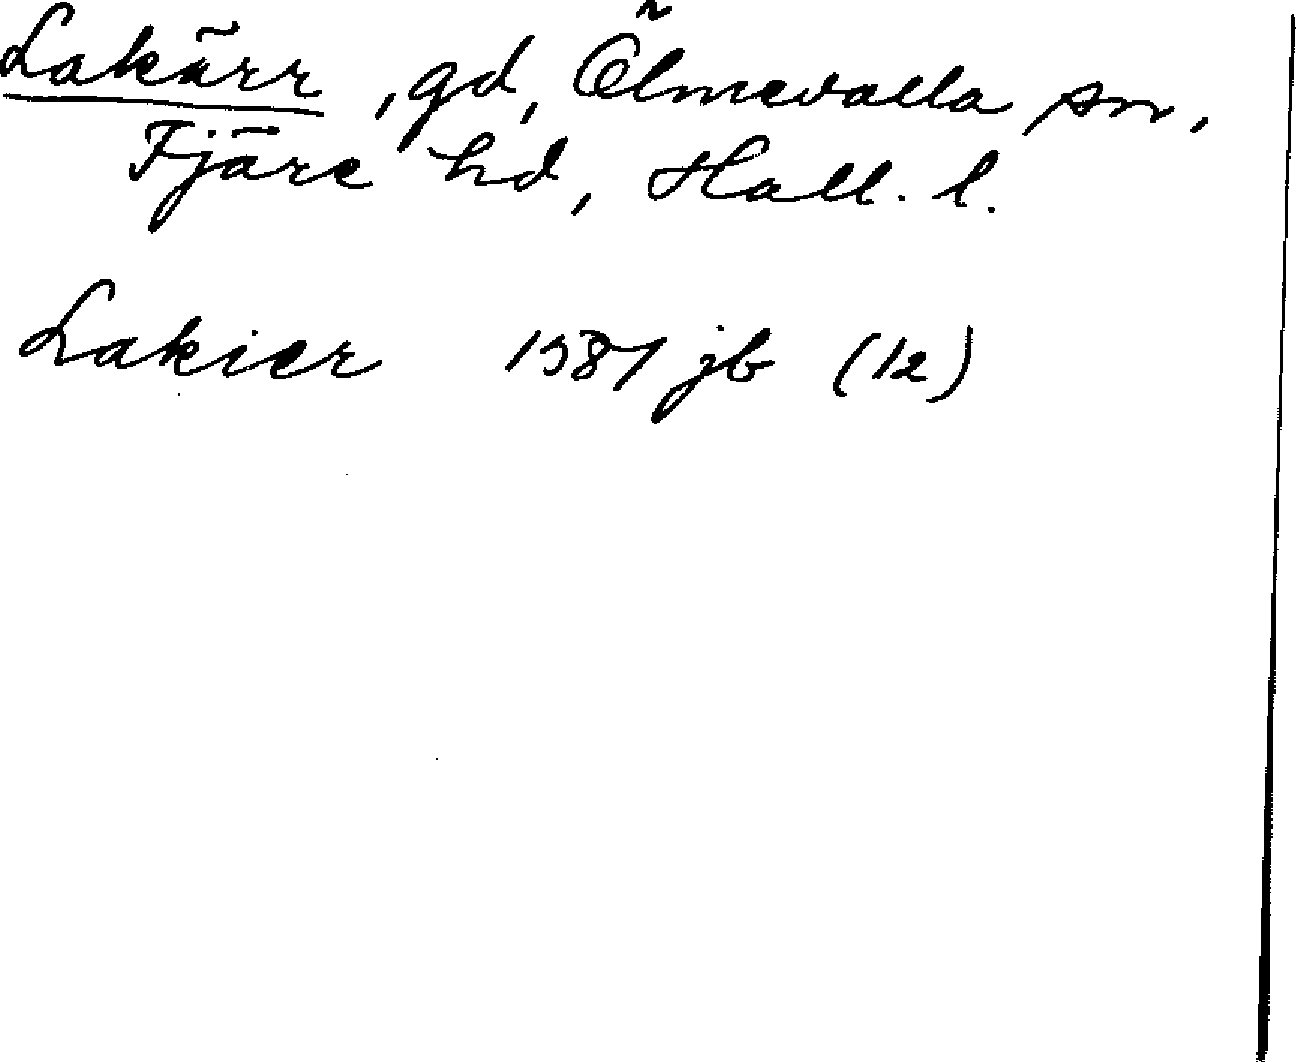 Lakärr, gd, Ölmevalla sn,
Fjäre hd, Hall. l.
Lakier 1587 jb (12)